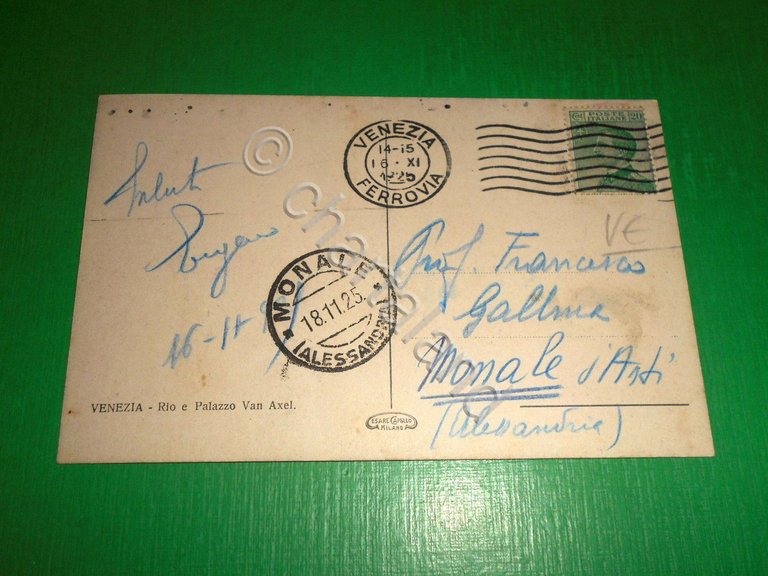 VENEZIA
14-15
16·XI
1925
FERROVIA
POSTE
ITALIANE
20
VE
Saluti
16-11
MONALE
18.11.25
(ALESSANDRIA)
Prof. Francesco
Gallina
Monale d'Asti
(Alessandria)
VENEZIA - Rio e Palazzo Van Axel.
CESARE CAPELLO
MILANO
©